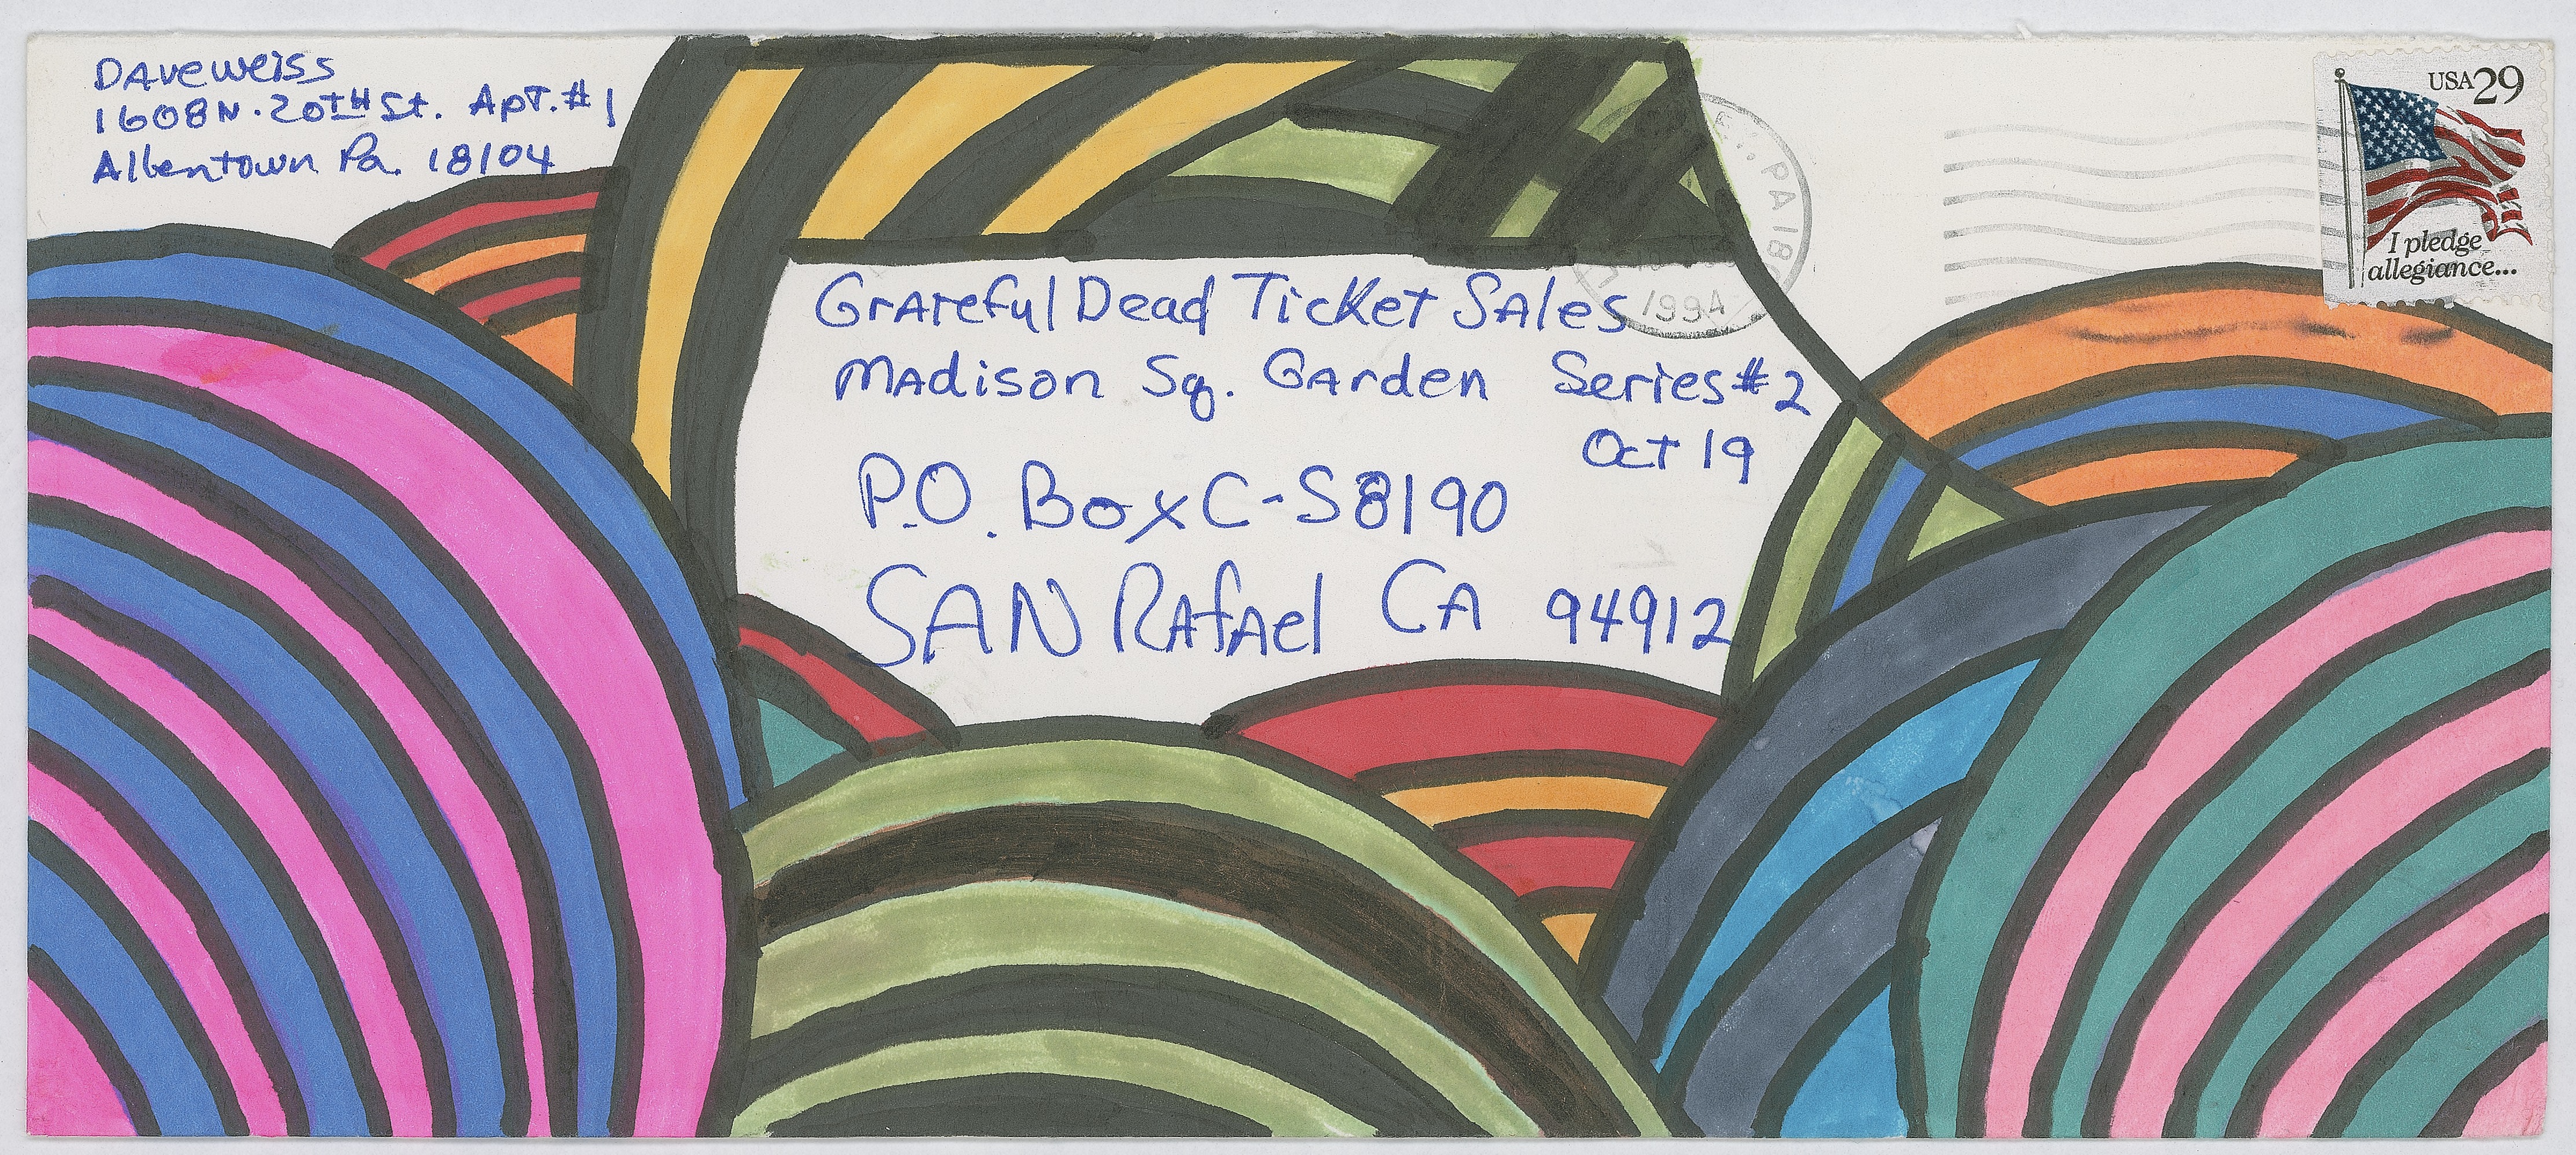 DAveweiss
1608 N. 20TH St. Apt. #1
Allentown Pa. 18104
USA 29
I pledge
allegiance...
PA 18
1994
Grateful Dead Ticket Sales
Madison Sq. Garden Series #2
Oct 19
P.O. Box C-S8190
SAN RAfAel CA 94912